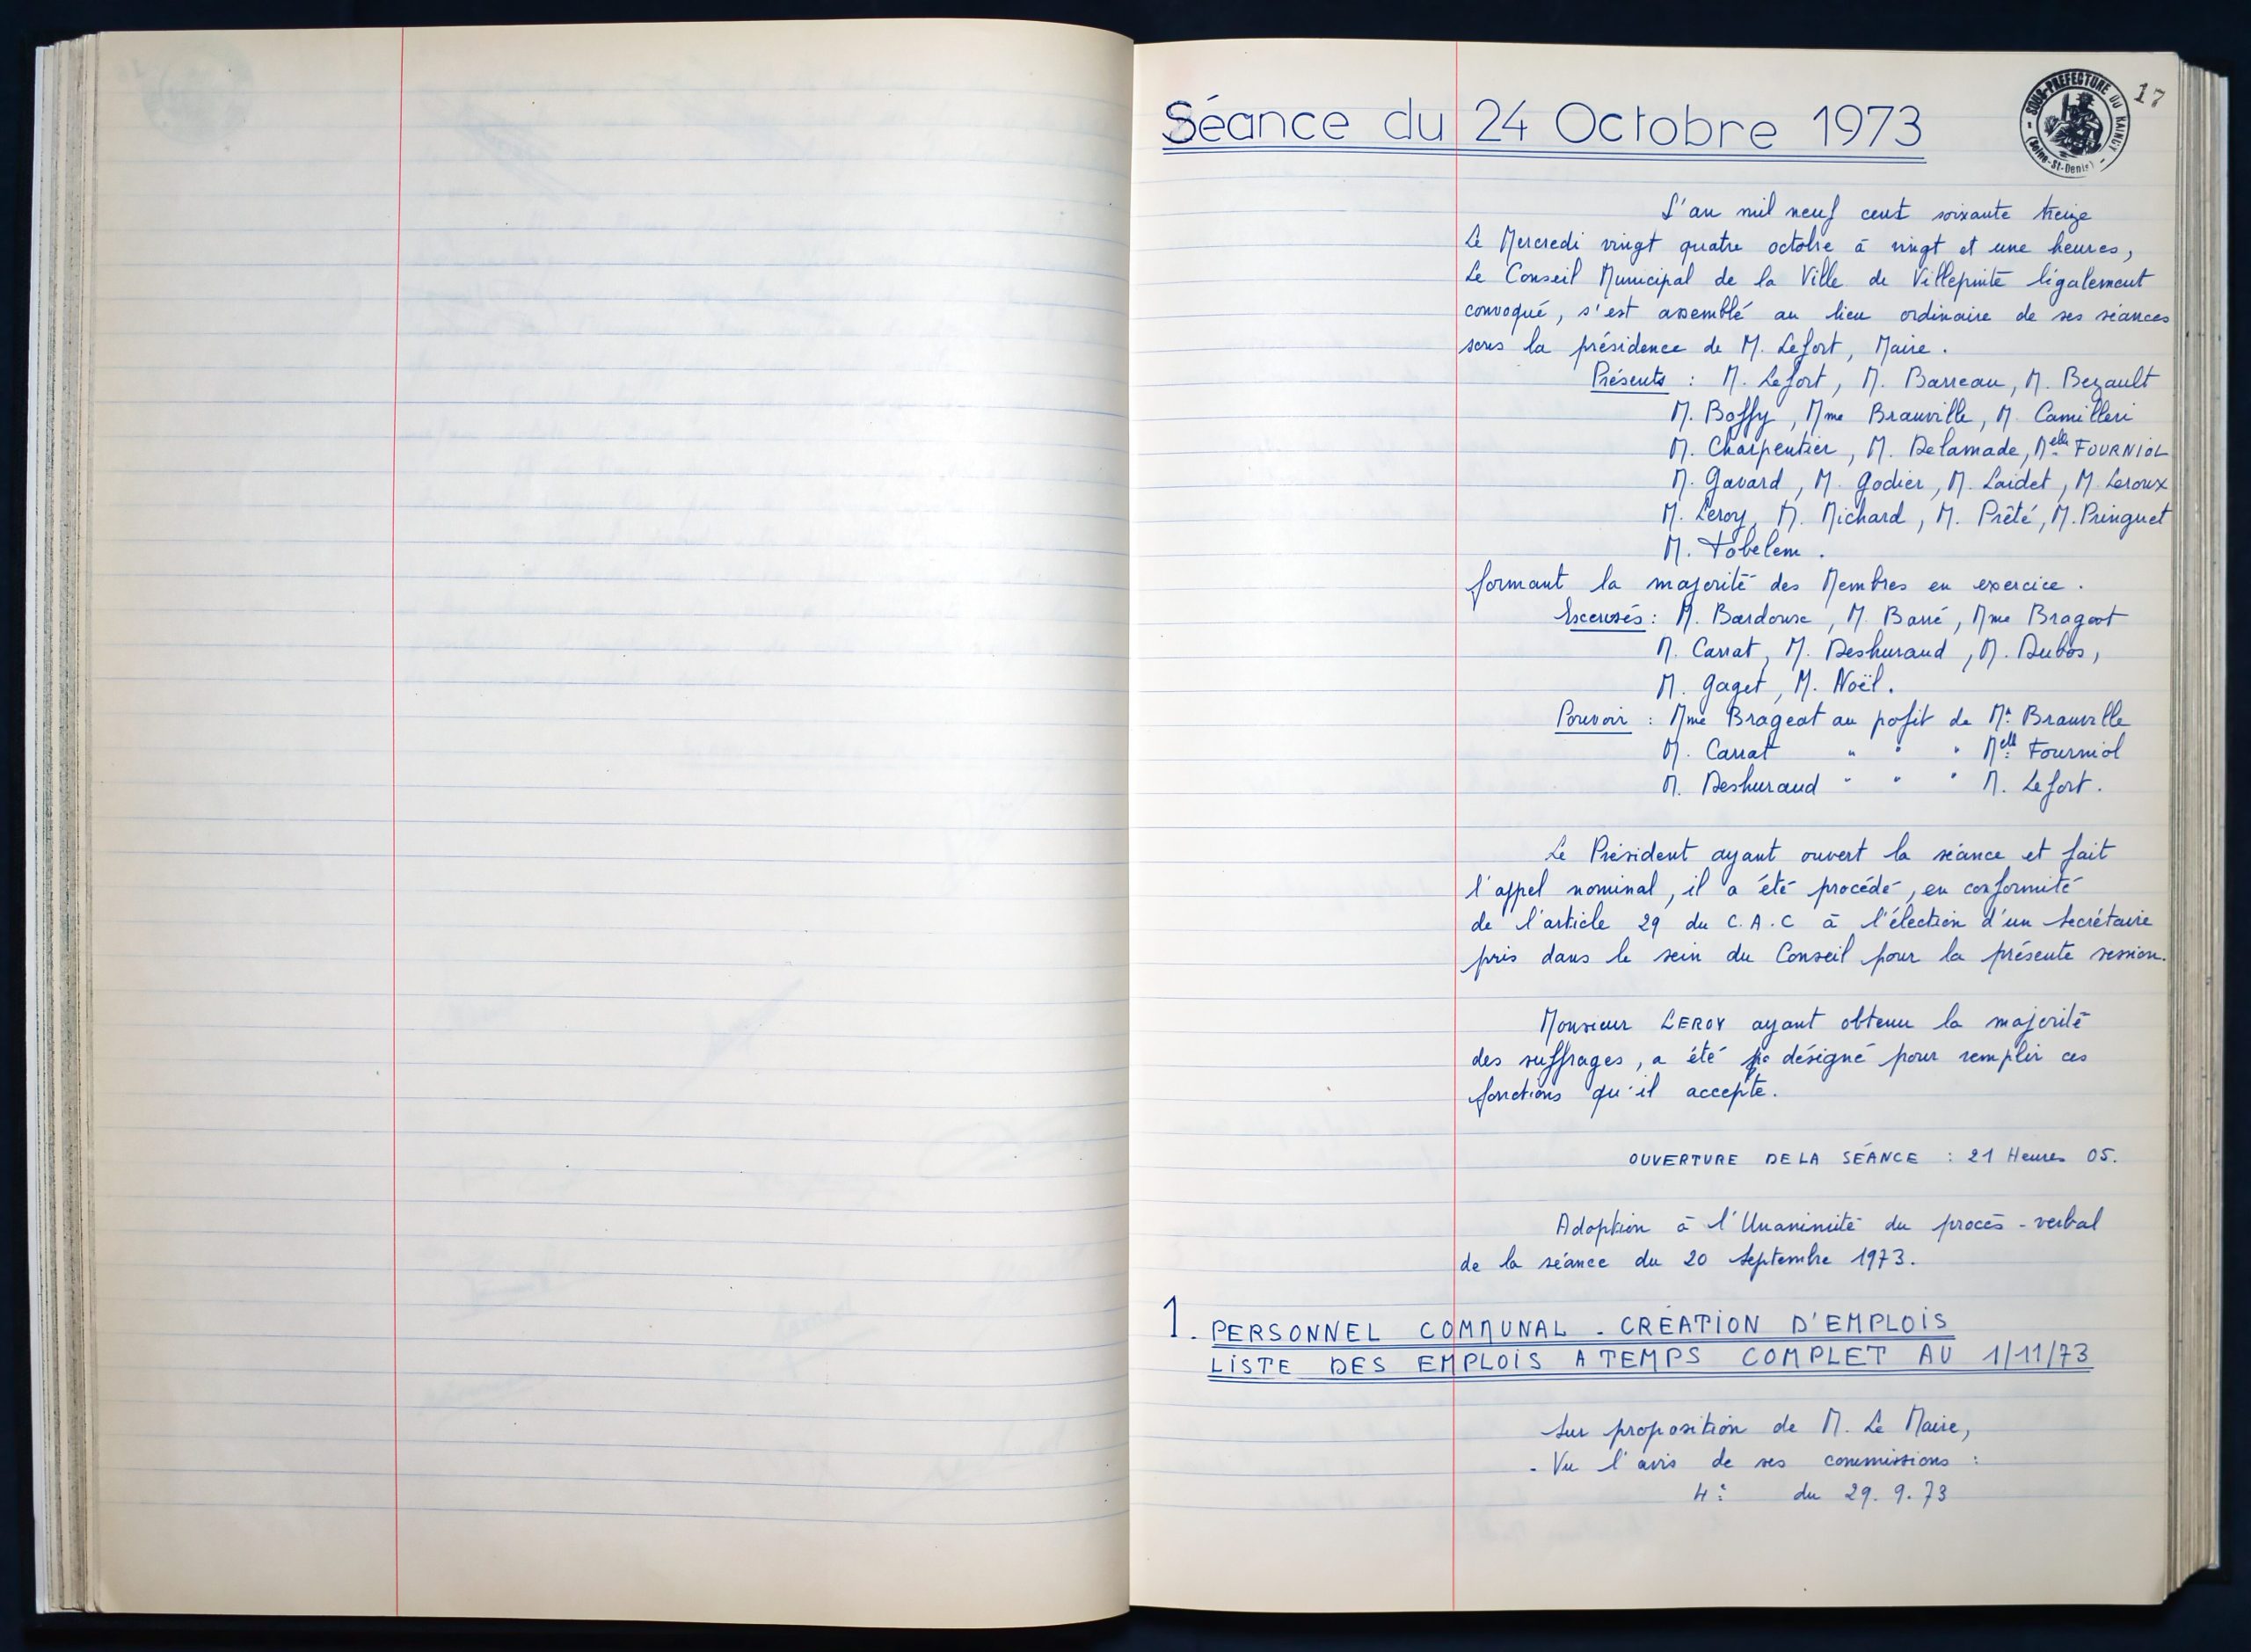 17
SOUS-PREFECTURE DU RAINCY
(Seine-St-Denis)
Séance du 24 Octobre 1973
L'an mil neuf cent soixante treize
Le Mercredi vingt quatre octobre à vingt et une heures,
Le Conseil Municipal de la Ville de Villepinte légalement
convoqué, s'est assemblé au lieu ordinaire de ses séances
sous la présidence de M. Lefort, Maire.
Présents : M. Lefort, M. Barreau, M. Bezault
M. Boffy, Mme Brauville, M. Camilleri
M. Charpentier, M. Delamade, Melle FOURNIOL
M. Gavard, M. Godier, M. Laidet, M. Leroux
M. Leroy, M. Michard, M. Prêté, M. Pringuet
M. Tobelem.
formant la majorité des Membres en exercice.
Excusés : M. Bardouse, M. Barré, Mme Brageot
M. Carrat, M. Deshuraud, M. Dubos,
M. Gaget, M. Noël.
Pouvoir : Mme Brageot au pofit de Me Brauville
M. Carrat " " " Melle Fourniol
M. Deshuraud " " " M. Lefort.
Le Président ayant ouvert la séance et fait
l'appel nominal, il a été procédé, en conformité
de l'article 29 du C.A.C à l'élection d'un secrétaire
pris dans le sein du Conseil pour la présente session.
Monsieur LEROY ayant obtenu la majorité
des suffrages, a été désigné pour remplir ces
fonctions qu'il accepte.
OUVERTURE DE LA SÉANCE : 21 Heures 05.
Adoption à l'Unanimité du procès-verbal
de la séance du 20 Septembre 1973.
1. PERSONNEL COMMUNAL - CRÉATION D'EMPLOIS
LISTE DES EMPLOIS A TEMPS COMPLET AU 1/11/73
Sur proposition de M. Le Maire,
- Vu l'avis de ses commissions :
4e du 29.9.73